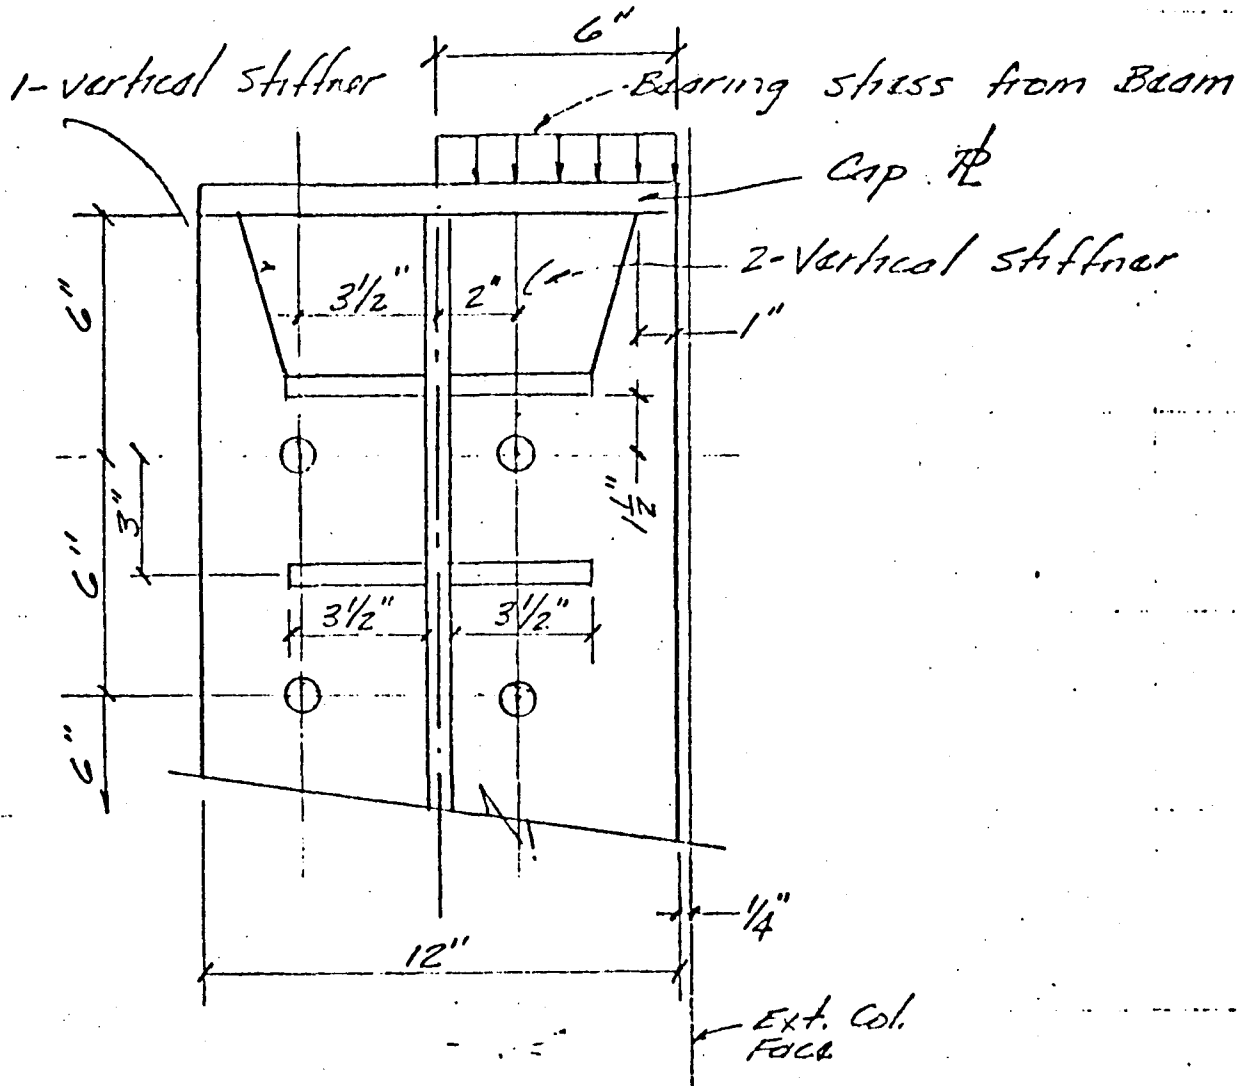 6"
1-vertical stiffner
Bearing stress from Beam
Cap PL
2-Vertical stiffner
3 1/2"
2"
1"
6"
1 1/2"
3"
6"
3 1/2"
3 1/2"
6"
1/4"
12"
Ext. Col.
Face